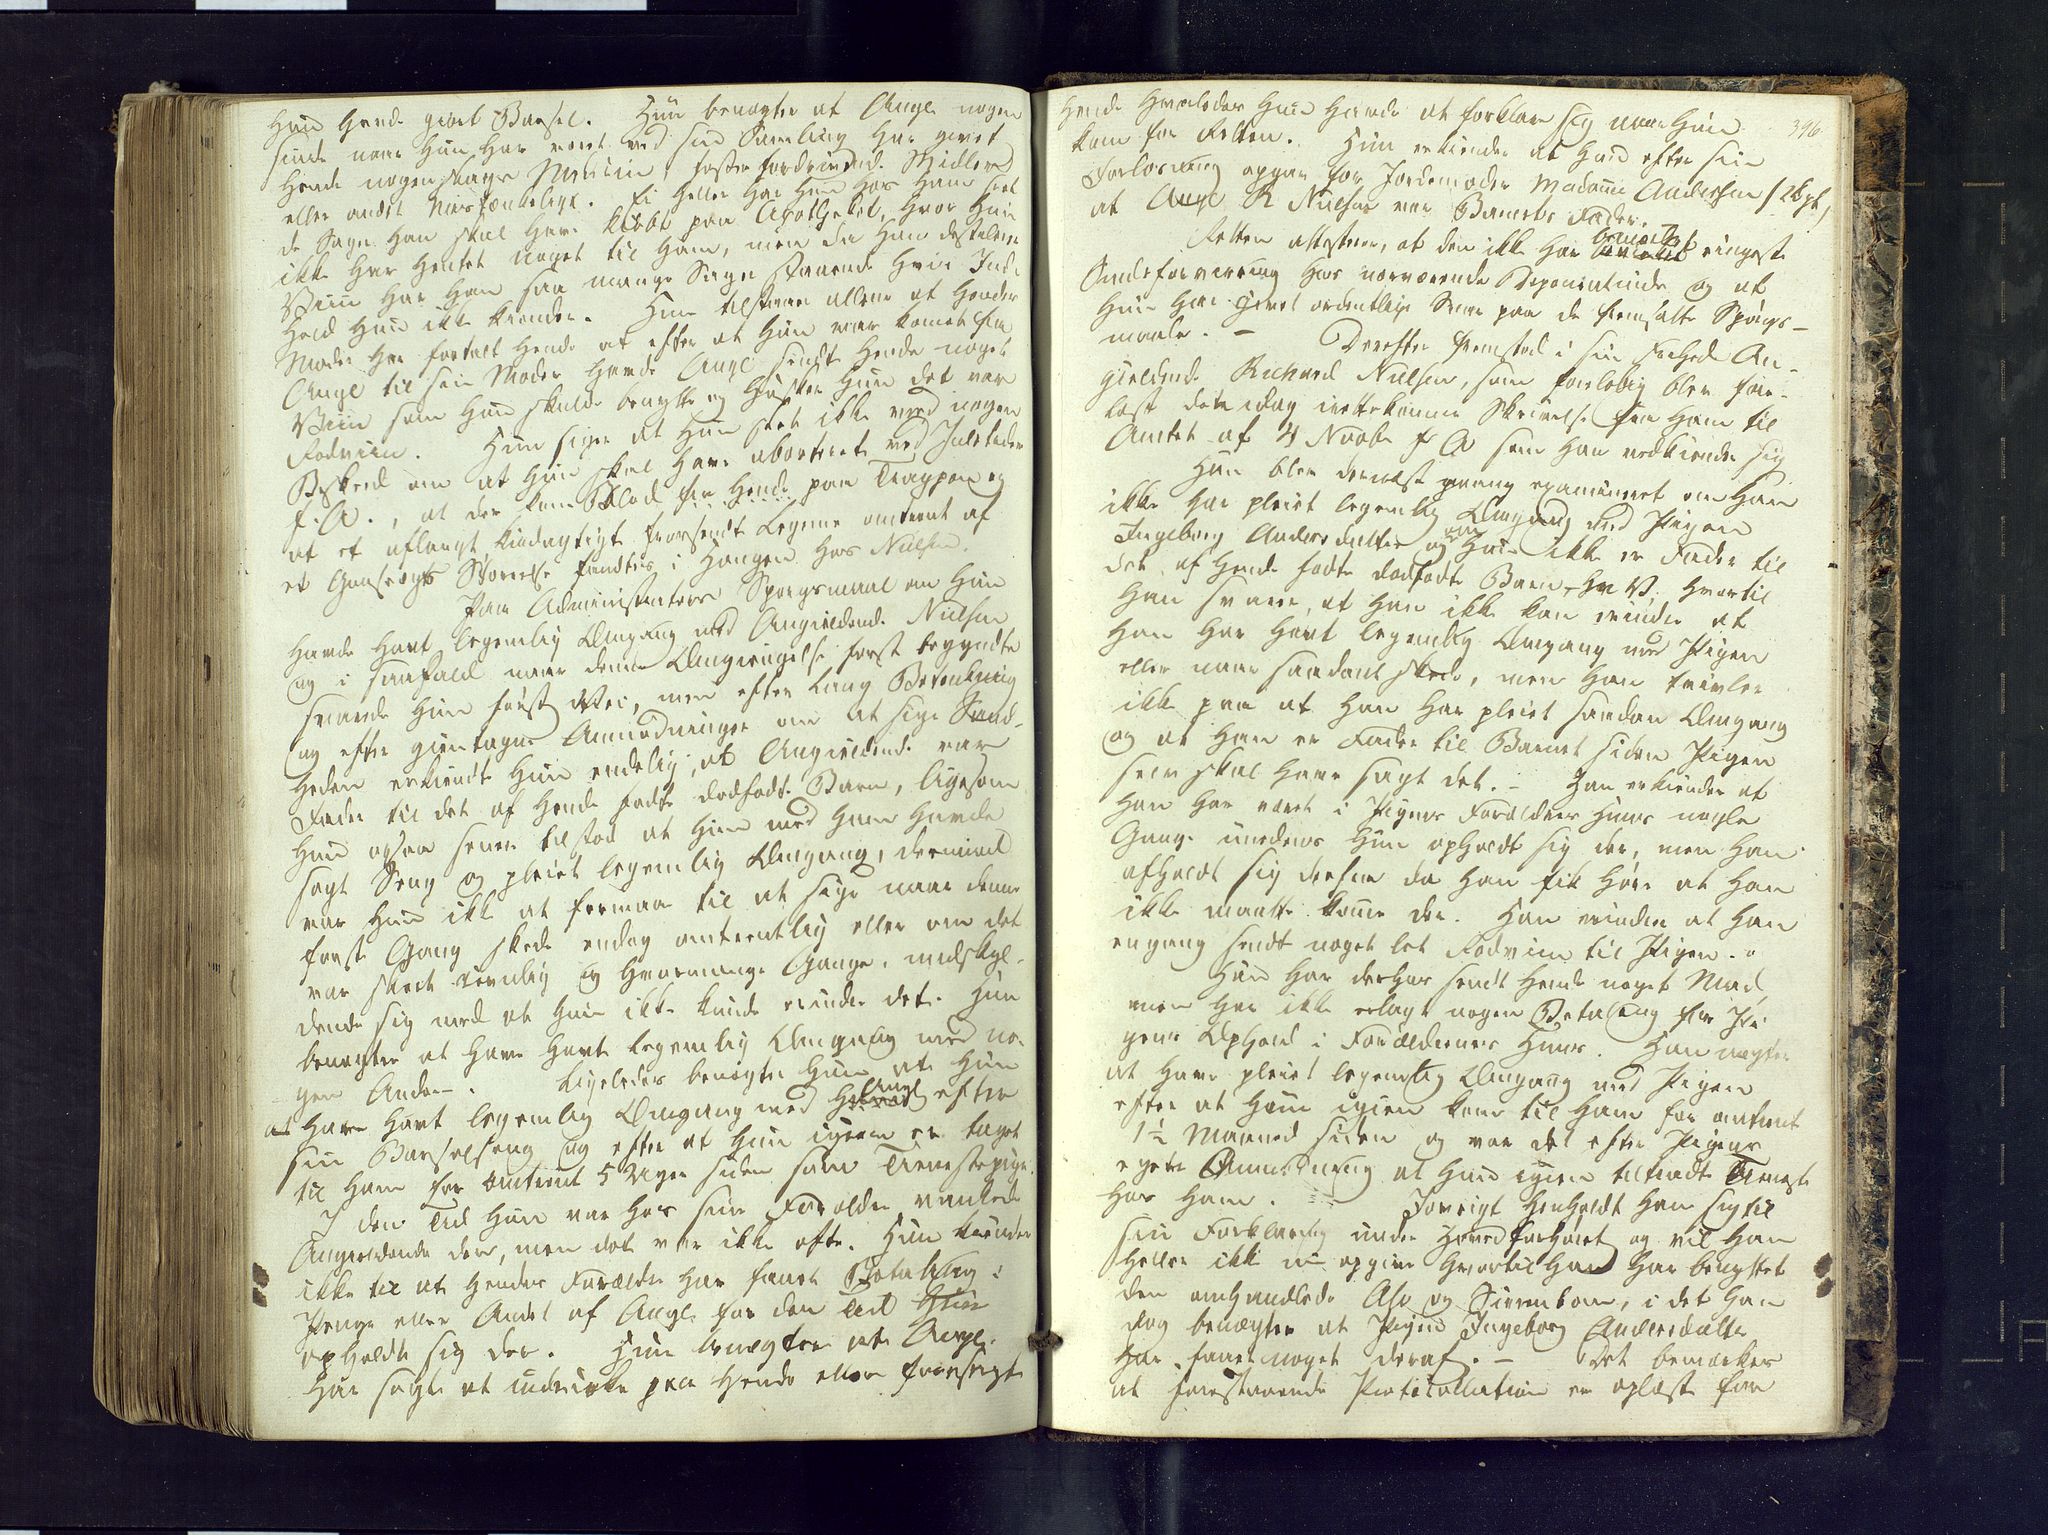 hun havde giort Barsel. Hun benægter at Angl. nogen
sinde naar hun har været ved sin Samling har givet
hende nogen slags Medicin, fosterfordrivende Midler
eller andet mistænkeligt. Ei heller har hun hos ham seet
de Sager han skal have kiøbt paa Apotheket, hvor hun
ikke har hentet noget til ham, men da han destilerer
Viin har han saa mange Sager staaende hvis Ind-
hold hun ikke kiender. Hun tilstaaer allene at hendes
Moder har fortalt hende at efter at hun var komet fra
Angl til sin Moder havde Angl sendt hende noget
Viin som hun skulde benytte og husker hun det var
Rødviin. Hun siger at hun slet ikke veed nogen
Beskeed om at hun skal have aborteret ved Juletider
f. A., at der kom Blod fra hende paa Trappen og
at et aflangt, kiødagtigt henseendt Legeme omtrent af
et Gaaseægs Størrelse fandtes i Hongen hos Nielsen.
Paa Administrators Spørgsmaal om hun
havde havt legemlig Omgang med Angieldende Nielsen
og i saafald naar denne Omgiengelse først begyndte
svarede hun først Nei, men efter lang Betænkning
og efter gientagne Anmodninger om at sige Sand-
heden erkiendte hun endelig, at Angieldende var
Fader til det af hende fødte dødfødte Barn, ligesom
hun ogsaa senere tilstod at hun med ham havde
søgt Seng og pleiet legemlig Omgang, derimod
var hun ikke at formaae til at sige naar denne
første Gang skede endog omtrentlig eller om det
var skeet jevnlig og hvormange Gange, undskyl-
dende sig med at hun ikke kunde erindre det. Hun
benægter at have havt legemlig Omgang med no-
gen Anden. Ligeledes benægter hun at hun
at have havt legemlig Omgang med Angl efter
sin Barselseng og efter at hun igien er taget
til ham for omtrent 5 Uger siden som Tienestepige.
I den Tid hun var hos sine Forældre vankede
Angieldende der, men det var ikke ofte. Hun kiender
ikke til at hendes Forældre har faaet Betaling i
Penge eller Andet af Angl. for den Tid hun
opholdt sig der. Hun benegter at Angl.
har søgt at indvirke paa hende eller foresagt
396
hende hvorledes hun havde at forklare sig naar hun
kom for Retten. Hun erkiender at hun efter sin
Forløsning opgav for Jordemoder Madame Andersen
at Angl R Nielsen var Barnets Fader.
Retten attesterer, at den ikke har bemærket ringeste
Sindsforvirring hos nærværende Deponentinde og at
hun har givet ordentlige Svar paa de fremsatte Spørgs-
maale. – Derefter fremstod i sin Frihed An-
gieldende Richard Nielsen, som foreløbig blev fore-
læst den idag irettekomne Skrivelse fra ham til
Amtet af 4 Novbr f A som han vedkiender sig
Han blev dernæst nøiere examineret om han
ikke har pleiet legemlig Omgang med Pigen
Ingeborg Andersdatter og om han ikke er Fader til
det af hende fødte dødfødte Barn, hvortil
han svarer, at han ikke kan erindre at
han har havt legemlig Omgang med Pigen
eller naar saadant skede, men han tvivler
ikke paa at han har pleiet saadan Omgang
og at han er Fader til Barnet siden Pigen
selv skal have sagt det. – Han erkiender at
han har været i Pigens Forældres Huus nogle
Gange imedens hun opholdt sig der, men han
afholdt sig derfra da han fik høre at han
ikke maatte komme der. Han erindrer at han
engang sendt noget let Rødviin til Pigen.
Han har derhos sendt hende noget Mad,
men har ikke erlagt nogen Betaling for Pi-
gens Ophold i Forældrenes Huus. Han nægter
at have pleiet legemlig Omgang med Pigen
efter at hun igien kom til ham for omtrent
1½ Maaned siden og var det efter Pigens
egen Anmodning at hun igien tiltraadte Tieneste
hos ham. Iøvrigt henholdt han sig til
sin Forklaring under Hovedforhøret og vil han
heller ikke nu opgive hvortil han har benyttet
den omhandlede Aloe og Sevenbom, i det han
dog benægter at Pigen Ingeborg Andersdatter
har faaet noget deraf. – Det bemærkes
at forestaaende Protocollation er oplæst for